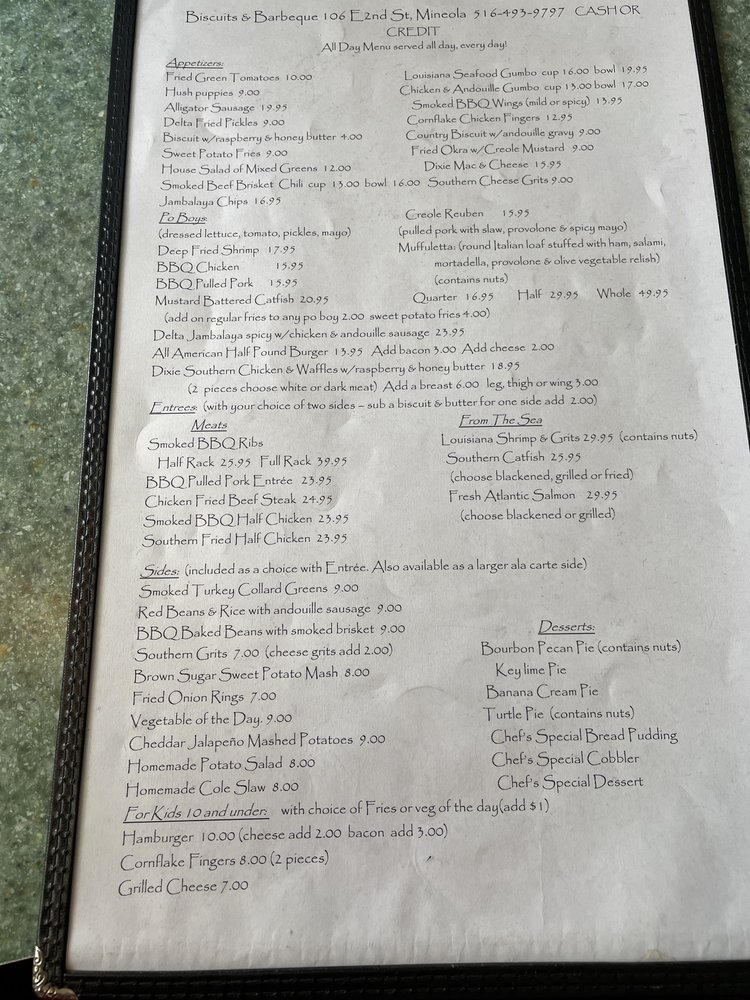 Biscuits & Barbeque 106 E2nd St, Mineola 516-493-9797 CASH OR
CREDIT
All Day Menu served all day, every day!
Appetizers:
Fried Green Tomatoes 10.00
Hush puppies 9.00
Alligator Sausage 19.95
Delta Fried Pickles 9.00
Biscuit w/raspberry & honey butter 4.00
Sweet Potato Fries 9.00
House Salad of Mixed Greens 12.00
Smoked Beef Brisket Chili cup 13.00 bowl 16.00
Jambalaya Chips 16.95
Louisiana Seafood Gumbo cup 16.00 bowl 19.95
Chicken & Andouille Gumbo cup 13.00 bowl 17.00
Smoked BBQ Wings (mild or spicy) 13.95
Cornflake Chicken Fingers 12.95
Country Biscuit w/andouille gravy 9.00
Fried Okra w/Creole Mustard 9.00
Dixie Mac & Cheese 15.95
Southern Cheese Grits 9.00
Po Boys:
(dressed lettuce, tomato, pickles, mayo)
Deep Fried Shrimp 17.95
BBQ Chicken 15.95
BBQ Pulled Pork 15.95
Mustard Battered Catfish 20.95
Creole Reuben 15.95
(pulled pork with slaw, provolone & spicy mayo)
Muffuletta: (round Italian loaf stuffed with ham, salami,
mortadella, provolone & olive vegetable relish)
(contains nuts)
Quarter 16.95 Half 29.95 Whole 49.95
(add on regular fries to any po boy 2.00 sweet potato fries 4.00)
Delta Jambalaya spicy w/chicken & andouille sausage 23.95
All American Half Pound Burger 13.95 Add bacon 3.00 Add cheese 2.00
Dixie Southern Chicken & Waffles w/raspberry & honey butter 18.95
(2 pieces choose white or dark meat) Add a breast 6.00 leg, thigh or wing 3.00
Entrees: (with your choice of two sides – sub a biscuit & butter for one side add 2.00)
Meats
Smoked BBQ Ribs
Half Rack 25.95 Full Rack 39.95
BBQ Pulled Pork Entrée 23.95
Chicken Fried Beef Steak 24.95
Smoked BBQ Half Chicken 23.95
Southern Fried Half Chicken 23.95
From The Sea
Louisiana Shrimp & Grits 29.95 (contains nuts)
Southern Catfish 25.95
(choose blackened, grilled or fried)
Fresh Atlantic Salmon 29.95
(choose blackened or grilled)
Sides: (included as a choice with Entrée. Also available as a larger ala carte side)
Smoked Turkey Collard Greens 9.00
Red Beans & Rice with andouille sausage 9.00
BBQ Baked Beans with smoked brisket 9.00
Southern Grits 7.00 (cheese grits add 2.00)
Brown Sugar Sweet Potato Mash 8.00
Fried Onion Rings 7.00
Vegetable of the Day. 9.00
Cheddar Jalapeño Mashed Potatoes 9.00
Homemade Potato Salad 8.00
Homemade Cole Slaw 8.00
Desserts:
Bourbon Pecan Pie (contains nuts)
Key lime Pie
Banana Cream Pie
Turtle Pie (contains nuts)
Chef's Special Bread Pudding
Chef's Special Cobbler
Chef's Special Dessert
For Kids 10 and under: with choice of Fries or veg of the day(add $1)
Hamburger 10.00 (cheese add 2.00 bacon add 3.00)
Cornflake Fingers 8.00 (2 pieces)
Grilled Cheese 7.00